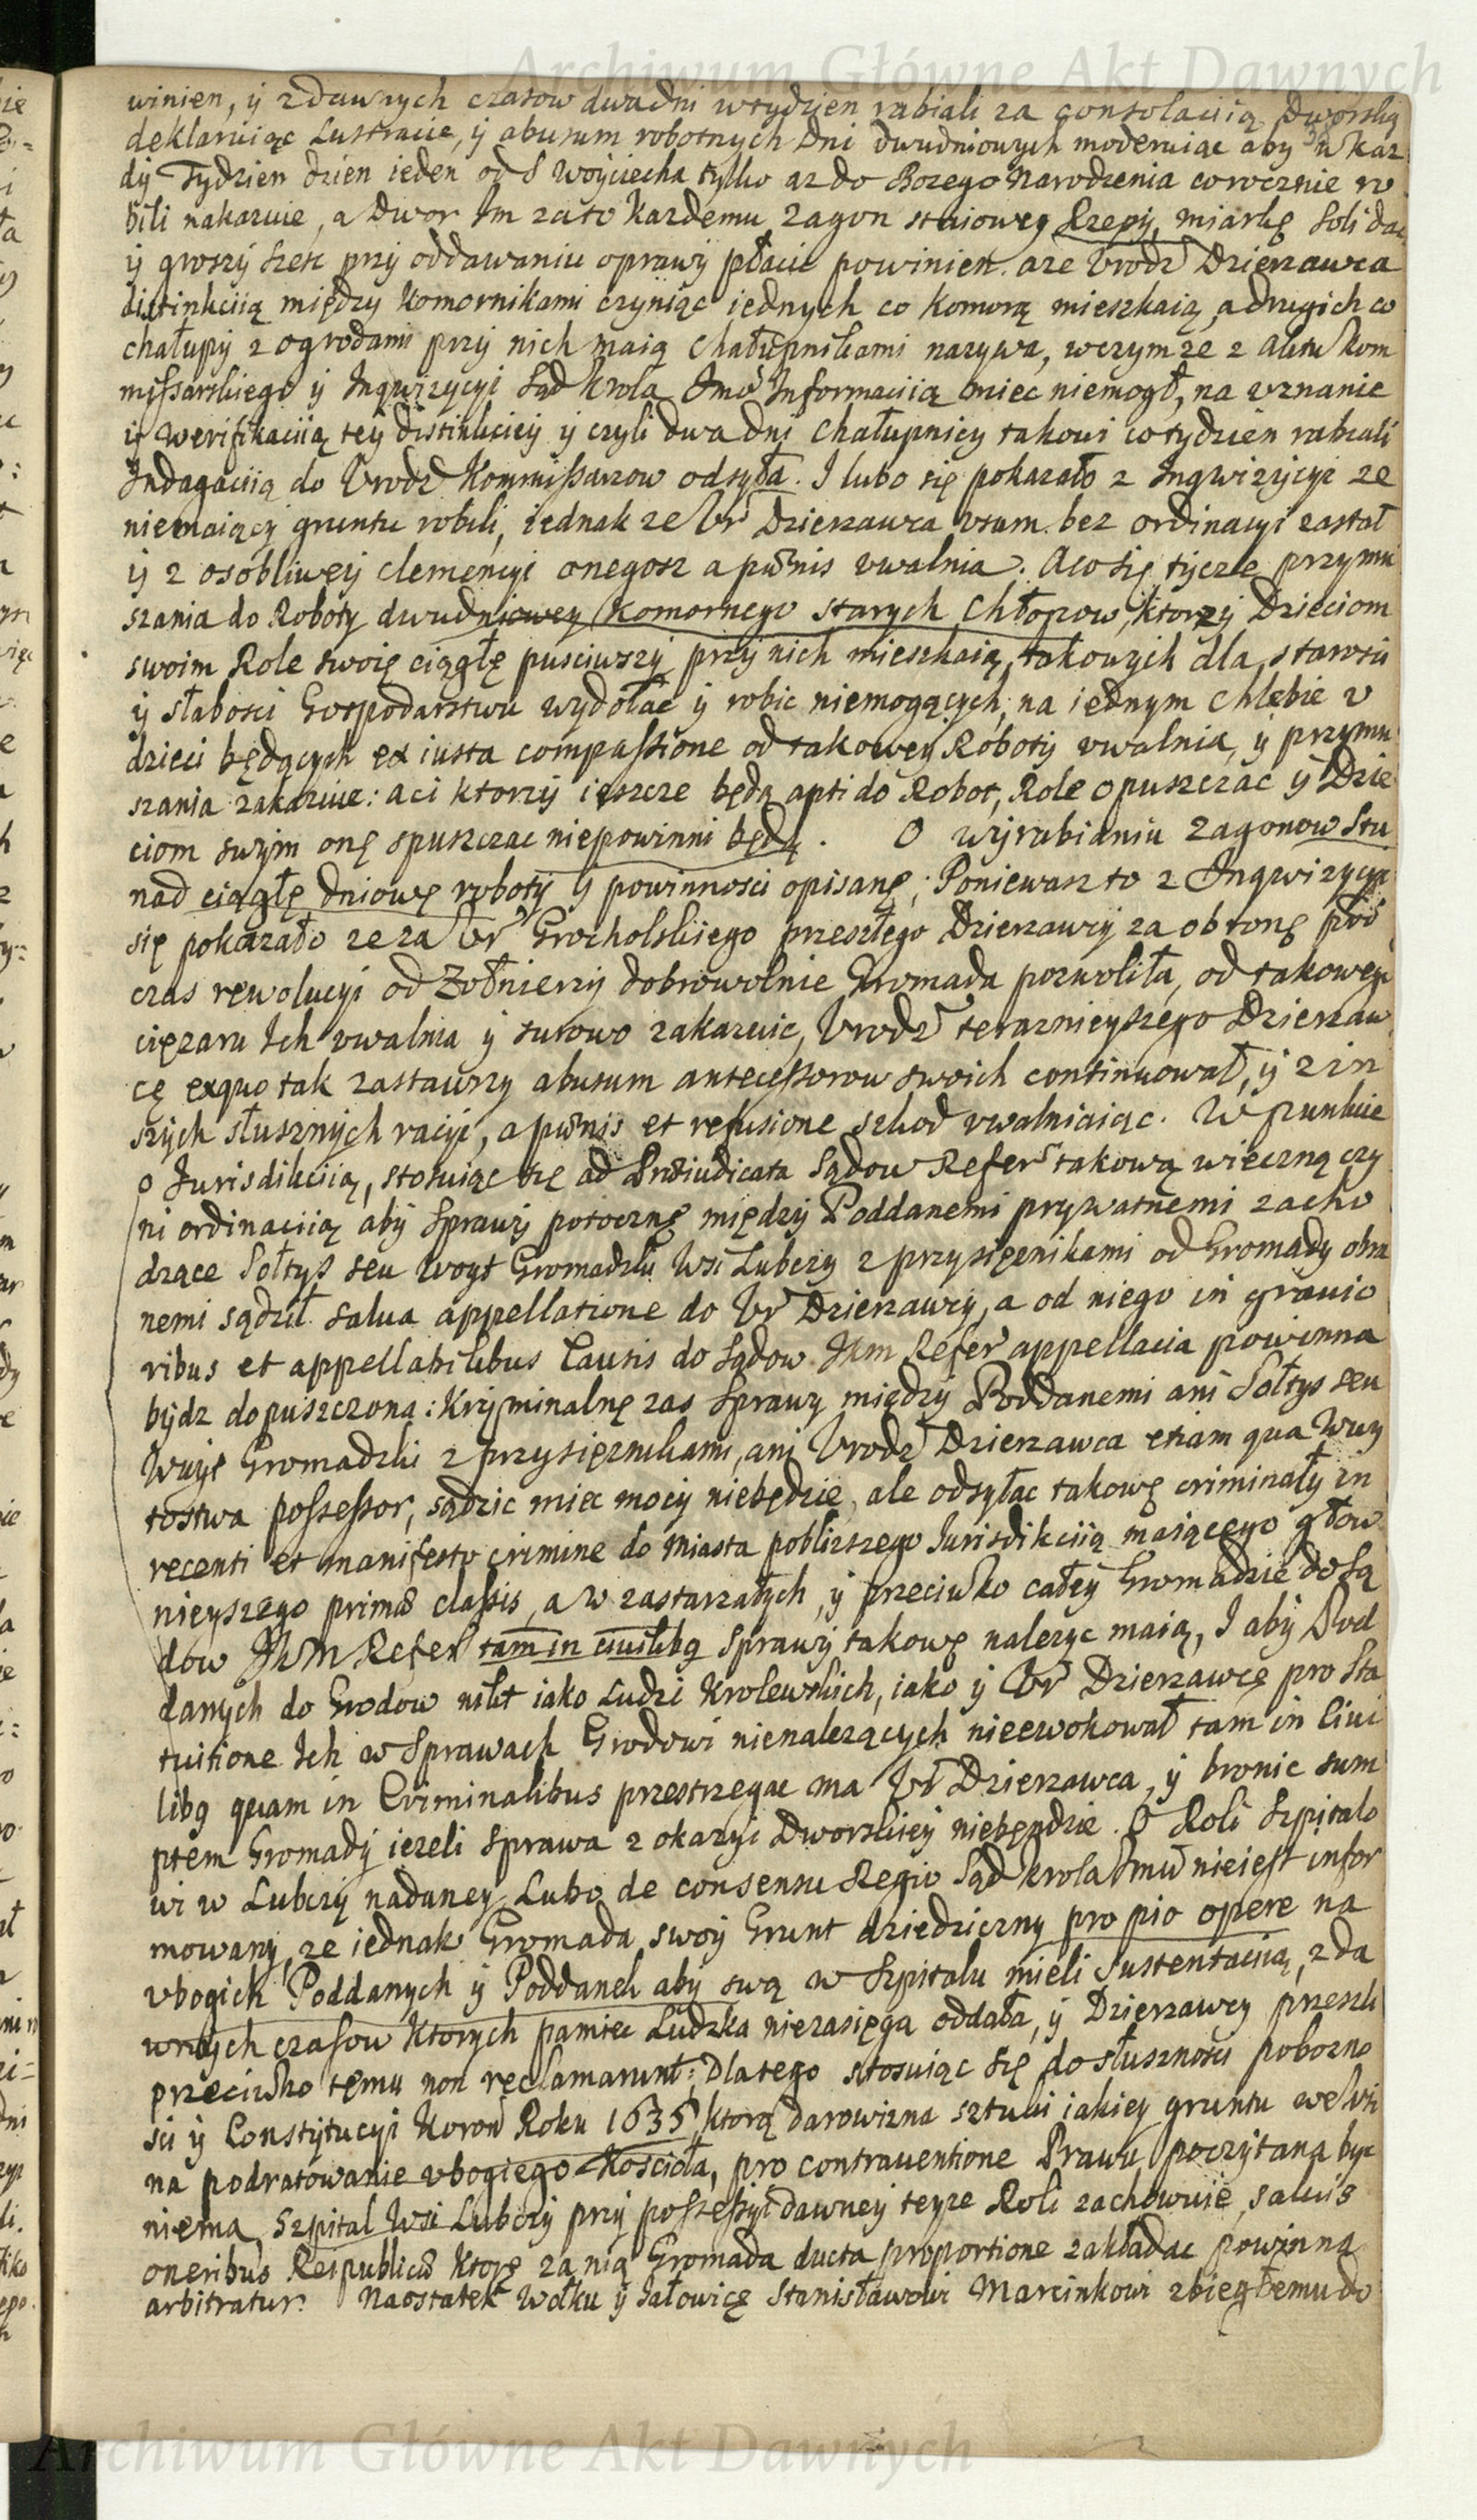 Archiwum Główne Akt Dawnych
winien, ÿ z dawnych czasow dwa dni w tydzien rabiali za consolaciią Dworską
deklaruiąc Lustracie, ÿ abusum robotnych Dni dwudniowych moderuiąc aby w kaz
dÿ Tydzien dzien ieden od S Woyciecha tylko az do Bozego Narodzenia corocznie ro
bili nakazuie, a Dwor Im za to kazdemu Zagon staiowey Rzepÿ, miarkę Soli dac
ÿ groszÿ szesc przÿ oddawaniu oprawÿ płacic powinien. a ze Vrodz Dzierzawca
distinkciią między Komornikami czyniąc iednych co komorą mieszkaią, a drugich co
chałupÿ z ogrodami przÿ nich maią Chałupnikami nazywa, w czym ze z Aktu Kom
missarskiego ÿ Inqwizycyi Sąd Krola Jmci Informaciią miec niemogł, na vznanie
ÿ werifikaciią teÿ distinkcieÿ ÿ czyli dwa dni Chałupnicy takowi co tydzien rabiali
Indagaciią do Vrodz Kommissarzow odsyła. I lubo się pokazało z Inqwizÿcÿi ze
niemaiącÿ gruntu robili, iednak ze Vr Dzierzawca vsum bez ordinacyi zastał
ÿ z osobliweÿ clemencyi onegosz a pœnis vwalnia. A co się tÿcze przymu
szania do Roboty dwudniowey Komornego starych Chłopow, ktorzÿ Dzieciom
swoim Role swoię ciągłę pusciwszÿ przÿ nich mieszkaią, takowych dla starosci
ÿ słabosci Gospodarstwu wÿdołac ÿ robic niemogących, na iednym chlebie v
dzieci będących ex iusta compassione od takoweÿ Robotÿ vwalnia, ÿ przymu
szania zakazuie: a ci ktorzÿ ieszcze będą apti do Robot, Role opuszczac ÿ Dzie
ciom swÿm onę spuszczac niepowinni będą. O wÿrabianiu Zagonow Stu
nad ciągłę dniowę robotÿ ÿ powinnosci opisanę; Poniewasz to z Inqwizycyi
się pokazało ze za Vr Grocholskiego przeszłego Dzierzawcÿ za obronę pod
czas rewolucyi od Zołnierzÿ dobrowolnie Gromada pozwoliła, od takowego
cięzaru Ich vwalnia ÿ surowo zakazuie, Vrodz teraznieyszego Dzierzaw
cę ex quo tak zastawszy abusum antecessorow swoich continuował, ÿ z in
szÿch słusznych racÿi, a pœnis et refusione szkod vwalniaiąc. W punkcie
o Jurisdikciią, stosuiąc się ad Præiudicata Sądow Refer takową wieczną czy
ni ordinaciią abÿ Sprawÿ potocznę międzÿ Poddanemi prywatnemi zacho
dzące Sołtys seu Woyt Gromadzki Wsi Lubczy z przysięznikami od Gromady obra
nemi sądził salua appellatione do Vr Dzierzawcy, a od niego in grauio
ribus et appellabilibus Causis do Sądow JKM Refer appellacia powinna
bÿdz dopuszczona: Krÿminalnę zas Sprawy międzÿ Poddanemi ani Sołtys seu
Woÿt Gromadzki z przysięznikami, ani Vrodz Dzierzawca etiam qua Woy
tostwa possessor, sądzic miec mocÿ niebędzie, ale odsyłac takowę criminałÿ in
recenti et manifesto crimine do Miasta poblizszego Jurisdikciią maiącego głow
nieyszego primæ classis, a w zastarzałych, ÿ przeciwko całeÿ Gromadzie do Są
dow JKM Refer tam in ciuilibq Sprawÿ takowę nalezyc maią, I abÿ Pod
danych do Grodow nikt iako Ludzi Krolewskich, iako ÿ Vr Dzierzawcę pro sta
tuitione Ich w Sprawach Grodowi nienalezących nieewokował tam in Ciui
libq quam in Criminalibus przestrzegac ma Vr Dzierzawca, ÿ bronic sum
ptem Gromadÿ iezeli Sprawa z okazyi Dworskieÿ niebędzie. O Roli Szpitalo
wi w Lubczÿ nadaney Lubo de consensu Regio Sąd Krola Jmci nieiest infor
mowanÿ, ze iednak Gromada swoÿ Grunt dziedziczny pro pio opere na
vbogich Poddanych ÿ Poddanek abÿ swą w Szpitalu mieli Sustentaciią, z da
wnych czasow ktorych pamiec Ludzka niezasięga oddała, ÿ Dzierzawcy przeszli
przeciwko temu non reclamarunt; Dlatego stosuiąc się do słusznosci pobozno
sci ÿ Constÿtucÿi Koron Roku 1635 ktorą darowizna sztuki iakieÿ gruntu we Wsi
na podratowanie vbogiego Koscioła, pro contrauentione Prawu poczÿtana byc
niema Szpital Wsi Lubczÿ przÿ possessÿi dawneÿ teyze Roli zachowuie, saluis
oneribus Reipublicæ ktorę za nią Gromada ducta proportione zakładac powinna
arbitratur. Naostatek Wołku ÿ Jałowicę Stanisławowi Marcinkowi zbiegłemu do
Archiwum Główne Akt Dawnych